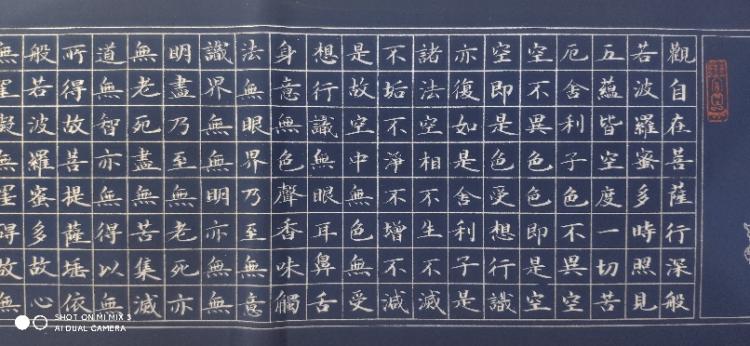 觀自在菩薩行深般
若波羅蜜多時照見
五蘊皆空度一切苦
厄舍利子色不異空
空不異色色即是空
空即是色受想行識
亦復如是舍利子是
諸法空相不生不滅
不垢不淨不增不減
是故空中無色無受
想行識無眼耳鼻舌
身意無色聲香味觸
法無眼界乃至無意
識界無無明亦無無
明盡乃至無老死亦
無老死盡無苦集滅
道無智亦無得以無
所得故菩提薩埵依
般若波羅蜜多故心
無罣礙無罣礙故無
SHOT ON MI MIX 3
AI DUAL CAMERA